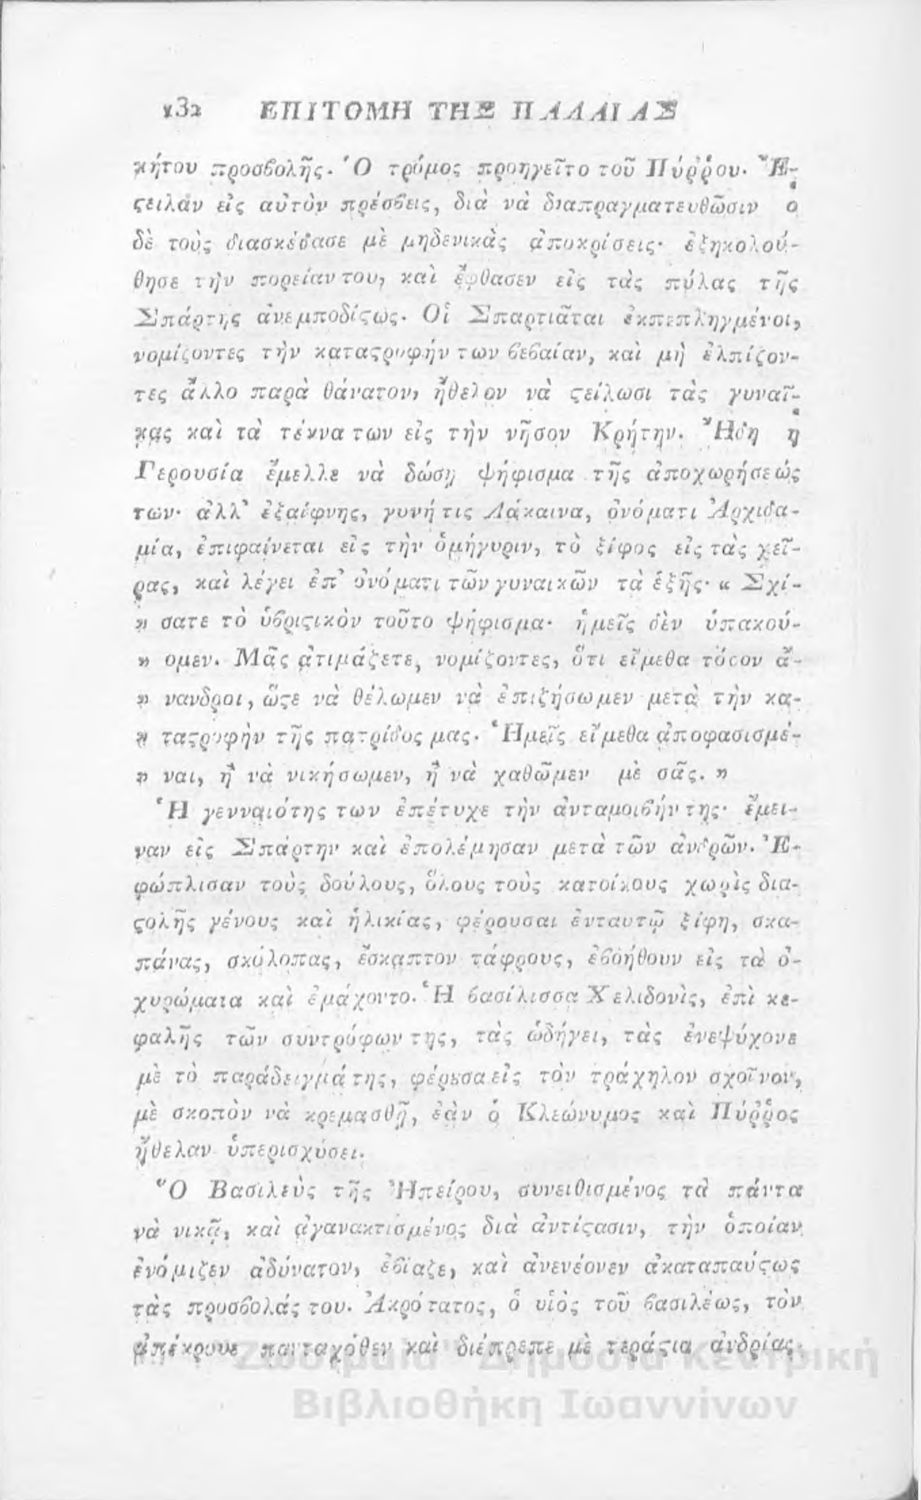 132 ΕΠΙΤΟΜΗ ΤΗΣ ΠΑΛΑΙΑΣ
κήτου προσβολῆς. Ὁ τρόμος προηγεῖτο τοῦ Πύῤῥου. Ἔ-
ςειλὰν εἰς αὐτὸν πρέσβεις, διὰ νὰ διαπραγματευθῶσιν ὁ
δὲ τοὺς διασκέδασε μὲ μηδενικὰς ἀποκρίσεις· ἐξηκολού-
θησε τὴν πορείαν του, καὶ ἔφθασεν εἰς τὰς πύλας τῆς
Σπάρτης ἀνεμποδίςως. Οἱ Σπαρτιᾶται ἐκπεπληγμένοι,
νομίζοντες τὴν καταςροφήν των βεβαίαν, καὶ μὴ ἐλπίζον-
τες ἄλλο παρὰ θάνατον, ἤθελον νὰ ςείλωσι τὰς γυναῖ-
κας καὶ τὰ τέκνα των εἰς τὴν νῆσον Κρήτην. Ἤδη ἡ
Γερουσία ἔμελλε νὰ δώσῃ ψήφισμα τῆς ἀποχωρήσεώς
των· ἀλλ' ἐξαίφνης, γυνή τις Λάκαινα, ὀνόματι Ἀρχιδα-
μία, ἐπιφαίνεται εἰς τὴν ὁμήγυριν, τὸ ξίφος εἰς τὰς χεῖ-
ρας, καὶ λέγει ἐπ' ὀνόματι τῶν γυναικῶν τὰ ἑξῆς· « Σχί-
» σατε τὸ ὑβριςικὸν τοῦτο ψήφισμα· ἡμεῖς δὲν ὑπακού-
» ομεν. Μᾶς ἀτιμάζετε, νομίζοντες, ὅτι εἴμεθα τόσον ἄ-
» νανδροι, ὥςε νὰ θέλωμεν νὰ ἐπιζήσωμεν μετὰ τὴν κα-
» ταςροφὴν τῆς πατρίδος μας. Ἡμεῖς εἴμεθα ἀποφασισμέ-
» ναι, ἢ νὰ νικήσωμεν, ἢ νὰ χαθῶμεν μὲ σᾶς. »
Ἡ γενναιότης των ἐπέτυχε τὴν ἀνταμοιβήν της· ἔμει-
ναν εἰς Σπάρτην καὶ ἐπολέμησαν μετὰ τῶν ἀνδρῶν. Ἐ-
φώπλισαν τοὺς δούλους, ὅλους τοὺς κατοίκους χωρὶς δια-
ςολῆς γένους καὶ ἡλικίας, φέρουσαι ἐνταυτῷ ξίφη, σκα-
πάνας, σκόλοπας, ἔσκαπτον τάφρους, ἐβοήθουν εἰς τὰ ὀ-
χυρώματα καὶ ἐμάχοντο. Ἡ βασίλισσα Χελιδονὶς, ἐπὶ κε-
φαλῆς τῶν συντρόφων της, τὰς ὡδήγει, τὰς ἐνεψύχονε
μὲ τὸ παράδειγμά της, φέρȣσα εἰς τὸν τράχηλον σχοῖνον,
μὲ σκοπὸν νὰ κρεμασθῇ, ἐὰν ὁ Κλεώνυμος καὶ Πύῤῥος
ἤθελαν ὑπερισχύσει.
Ὁ Βασιλεὺς τῆς Ἠπείρου, συνειθισμένος τὰ πάντα
νὰ νικᾷ, καὶ ἀγανακτισμένος διὰ ἀντίςασιν, τὴν ὁποίαν
ἐνόμιζεν ἀδύνατον, ἐβίαζε, καὶ ἀνενέονεν ἀκαταπαύςως
τὰς προσβολάς του. Ἀκρότατος, ὁ υἱὸς τοῦ βασιλέως, τὸν
ἀπέκρουε πανταχόθεν καὶ διέπρεπε μὲ τεράςια ἀνδρίας.
Ζωσιμαία Δημόσια Κεντρική
Βιβλιοθήκη Ιωαννίνων